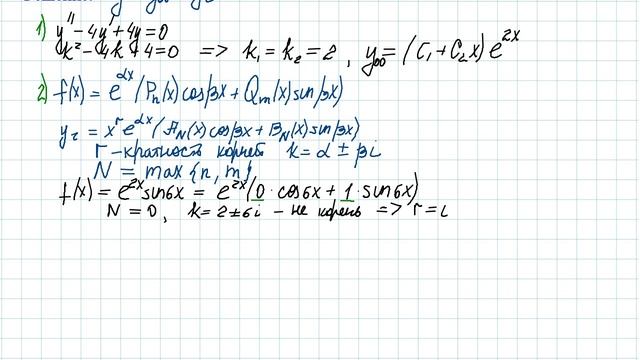 1) y'' - 4y' + 4y = 0
k² - 4k + 4 = 0 => k₁ = k₂ = 2, y₀₀ = (C₁ + C₂x) e^{2x}
2) f(x) = e^{αx} (Pₙ(x) cosβx + Qₘ(x) sinβx)
yᵣ = x^r e^{αx} (A_N(x) cosβx + B_N(x) sinβx)
r - кратность корней k = α ± βi
N = max {n, m}
f(x) = e^{2x} sin6x = e^{2x} (0 · cos6x + 1 · sin6x)
N = 0, k = 2 ± 6i - не корень => r =